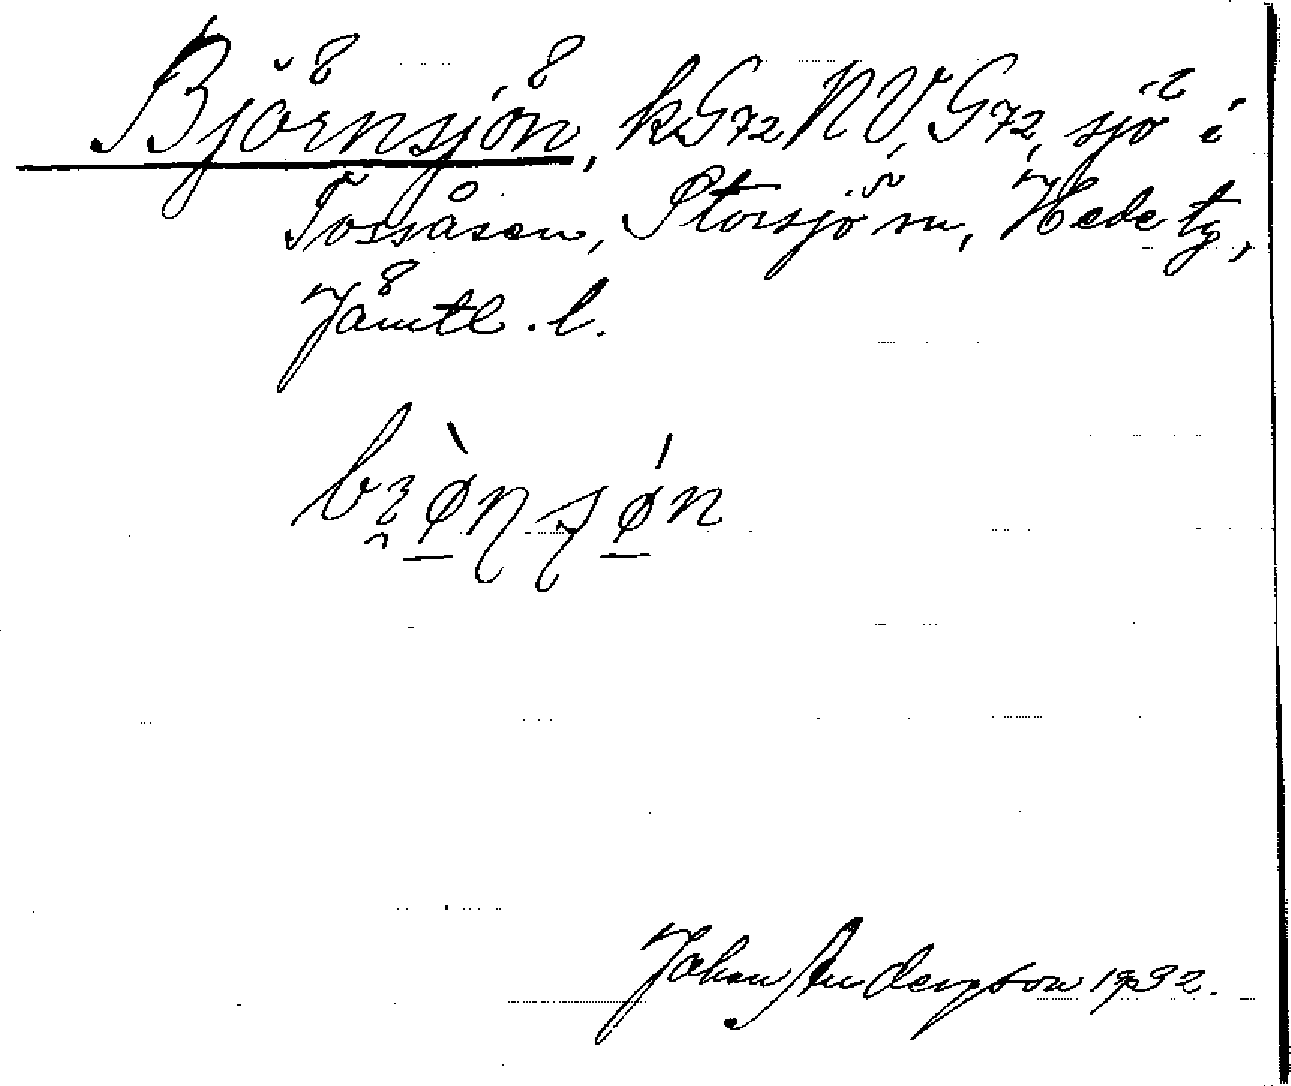 Björnsjön, kG72NV, G72, sjö i
Tossåsen, Storsjö sn, Hede tg,
Jämtl. l.
Johan Anderson 1932.